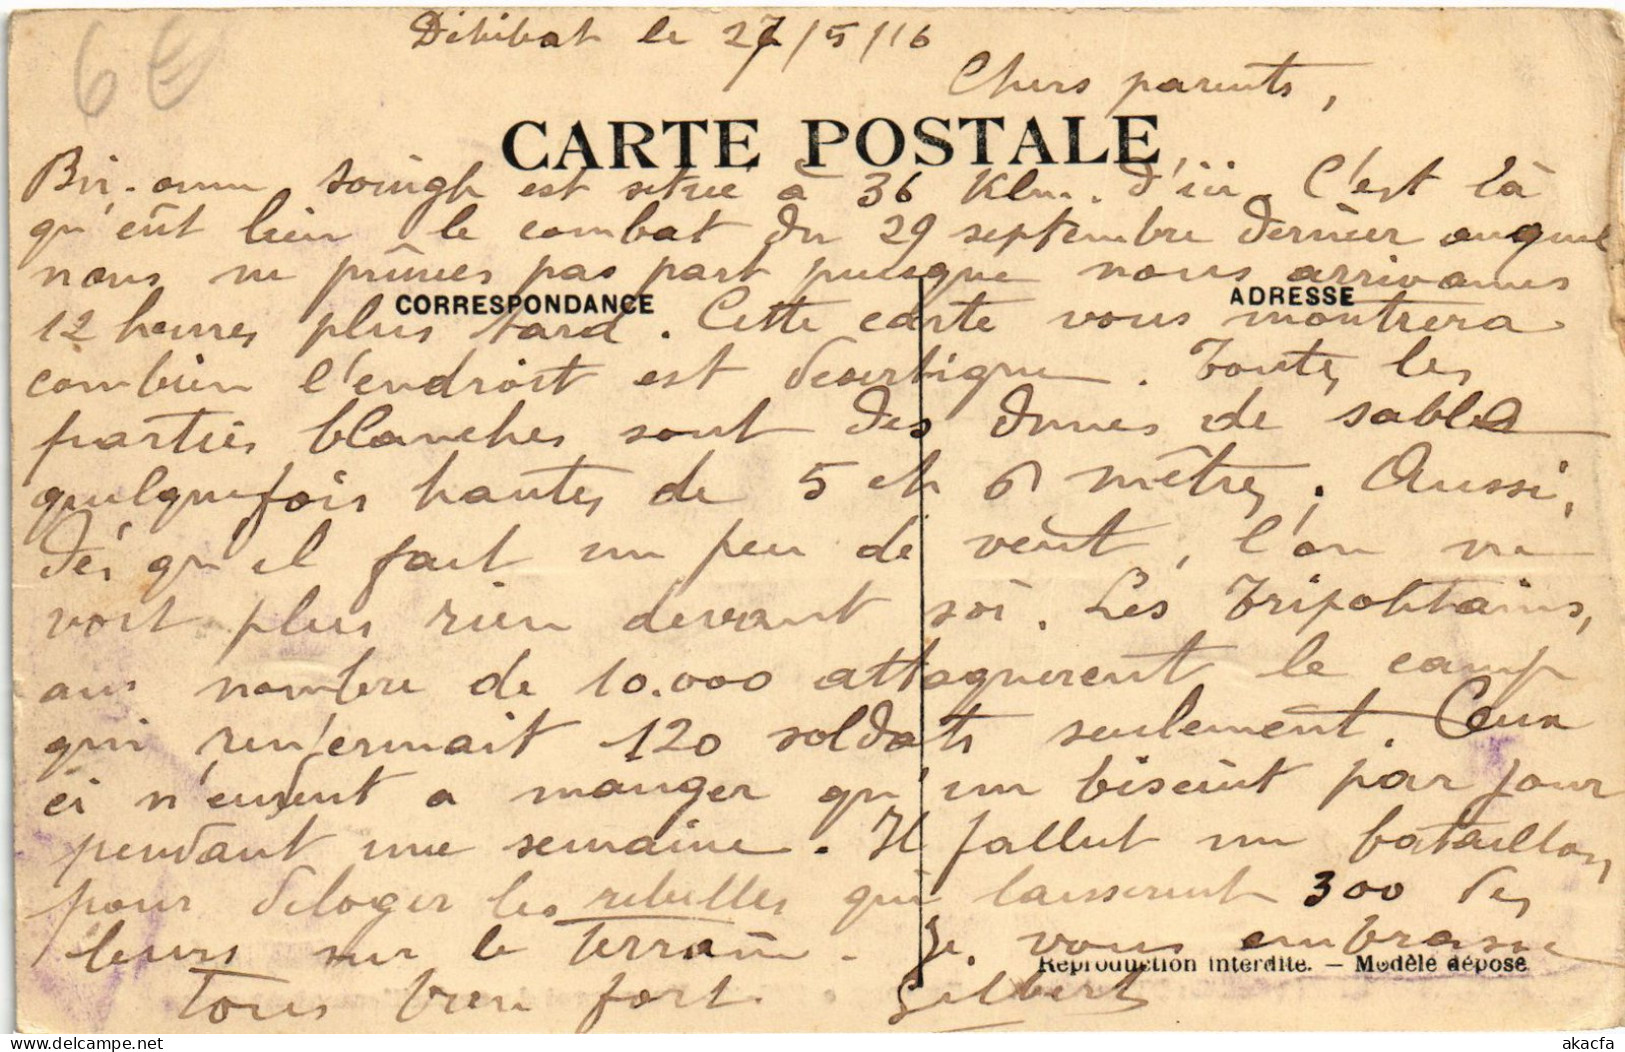 6 €
Déhibat le 27/5/16
Chers parents,
CARTE POSTALE
Bir. oum souigh est situé à 36 Klm. d'ici. C'est là
qu'eût lieu le combat du 29 septembre dernier auquel
nous ne prîmes pas part puisque nous arrivames
CORRESPONDANCE
ADRESSE
12 heures plus tard. Cette carte vous montrera
combien l'endroit est desertique. Toutes les
parties blanches sont des dunes de sable
quelquefois hautes de 5 et 6 mètres. Aussi,
dès qu'il fait un peu de vent, l'on ne
voit plus rien devant soi. Les Tripolitains,
au nombre de 10.000 attaquerent le camp
qui renfermait 120 soldats seulement. Ceux
ci n'eurent a manger qu'un biscuit par jour
pendant une semaine. Il fallut un bataillon
pour deloger les rebelles qui laisserent 300 des
leurs sur le terrain. Je vous embrasse
Reproduction interdite. — Modèle déposé
Tous bien fort. Gilbert
akacfa